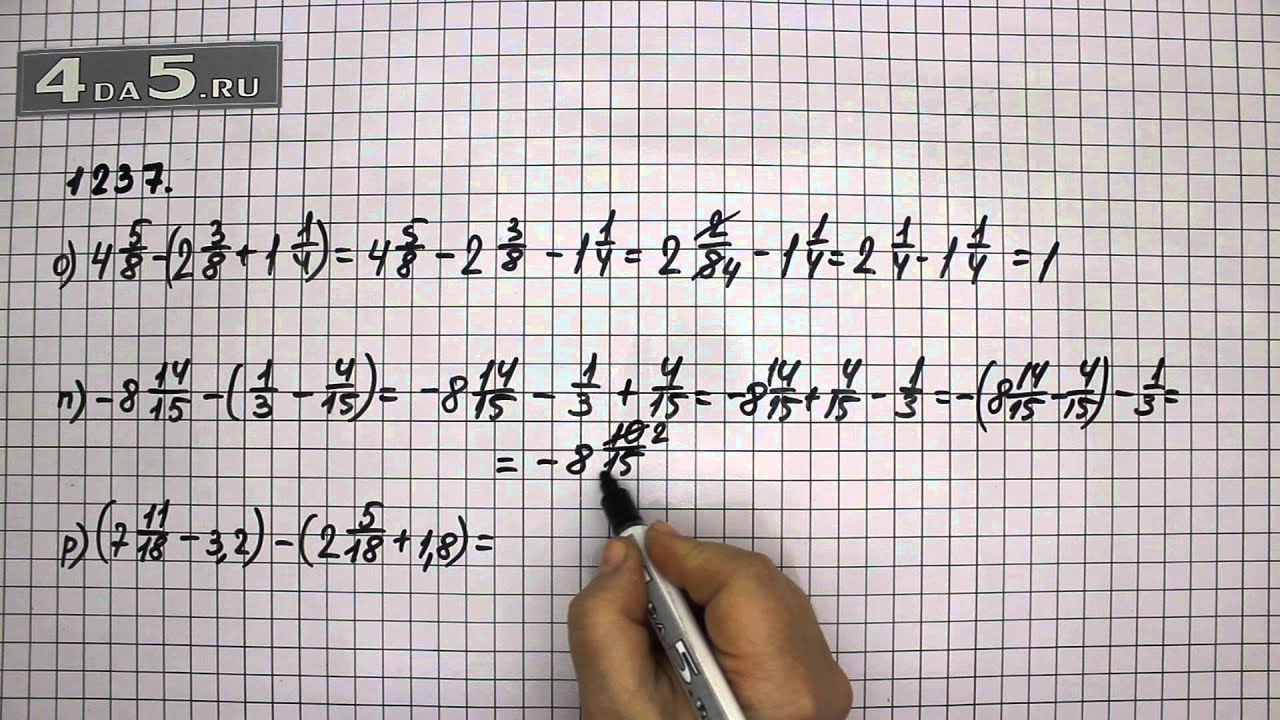 4DA5.RU
1237.
о) 4 5/8 - (2 3/8 + 1 1/4) = 4 5/8 - 2 3/8 - 1 1/4 = 2 2/8 4 - 1 1/4 = 2 1/4 - 1 1/4 = 1
п) -8 14/15 - (1/3 - 4/15) = -8 14/15 - 1/3 + 4/15 = -8 14/15 + 4/15 - 1/3 = -(8 14/15 - 4/15) - 1/3 =
= -8 10/15 2
р) (7 11/18 - 3,2) - (2 5/18 + 1,8) =